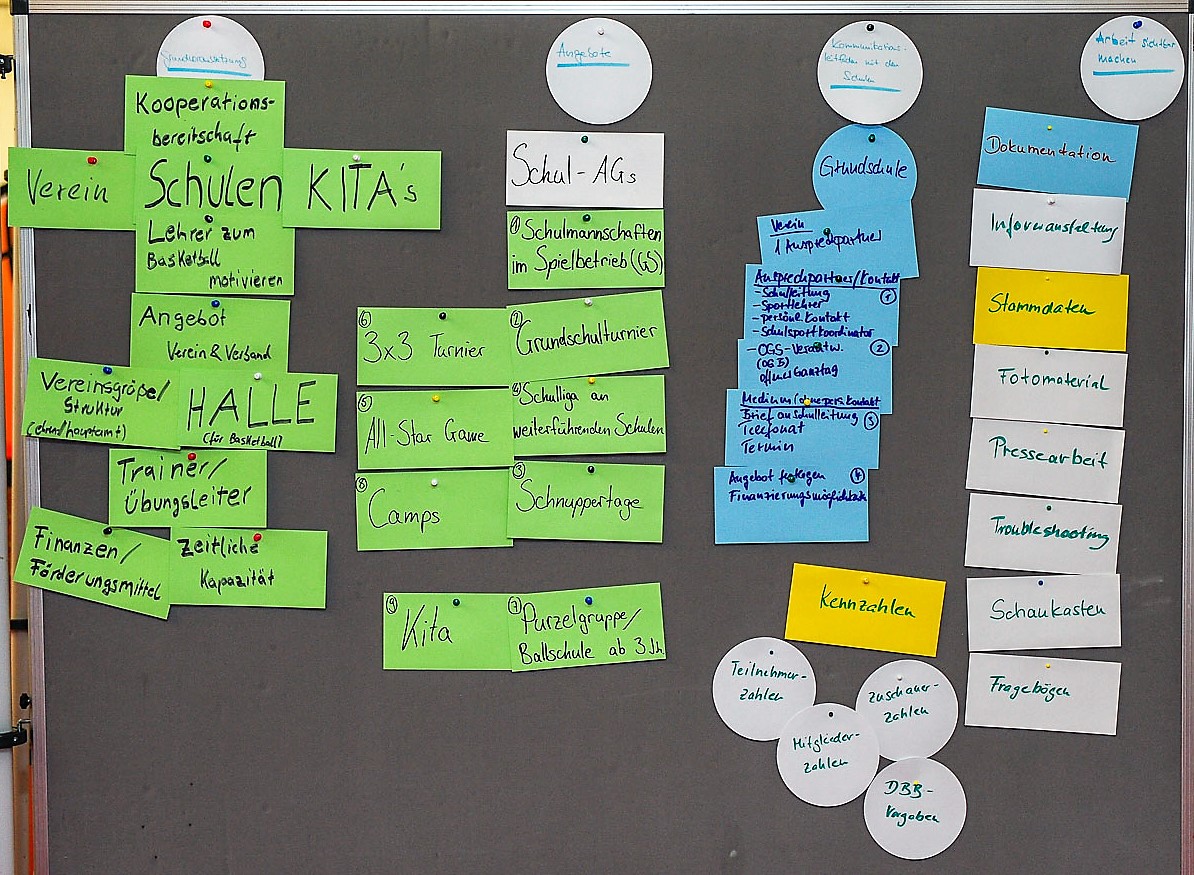 Grundvoraussetzung
Kooperations-
bereitschaft
Verein
Schulen
KITA's
Lehrer zum
Basketball
motivieren
Angebot
Verein & Verband
Vereinsgröße/
Struktur
(ehren/hauptamt)
HALLE
(für Basketball)
Trainer/
Übungsleiter
Finanzen/
Förderungsmittel
Zeitliche
Kapazität
Angebote
Schul-AGs
① Schulmannschaften
im Spielbetrieb (GS)
⑥ 3x3 Turnier
② Grundschulturnier
⑤ All-Star Game
④ Schulliga an
weiterführenden Schulen
⑧ Camps
③ Schnuppertage
⑨ Kita
⑦ Purzelgruppe/
Ballschule ab 3 Jh.
Kommunikations-
leitfaden mit den
Schulen
Grundschule
Verein
1 Ansprechpartner
Ansprechpartner/Kontakt
- Schulleitung ①
- Sportlehrer
- persönl. Kontakt
- Schulsportkoordinator
- OGS-Verantw. ②
offener Ganztag
Medium/ohne pers. Kontakt
Brief an Schulleitung ③
Telefonat
Termin
Angebot festlegen ④
Finanzierungsmöglichkeit
Kennzahlen
Teilnehmer-
zahlen
Zuschauer-
zahlen
Mitglieder-
zahlen
DBB-
Vorgaben
Arbeit sichtbar
machen
Dokumentation
Infoveranstaltung
Stammdaten
Fotomaterial
Pressearbeit
Troubleshooting
Schaukasten
Fragebögen